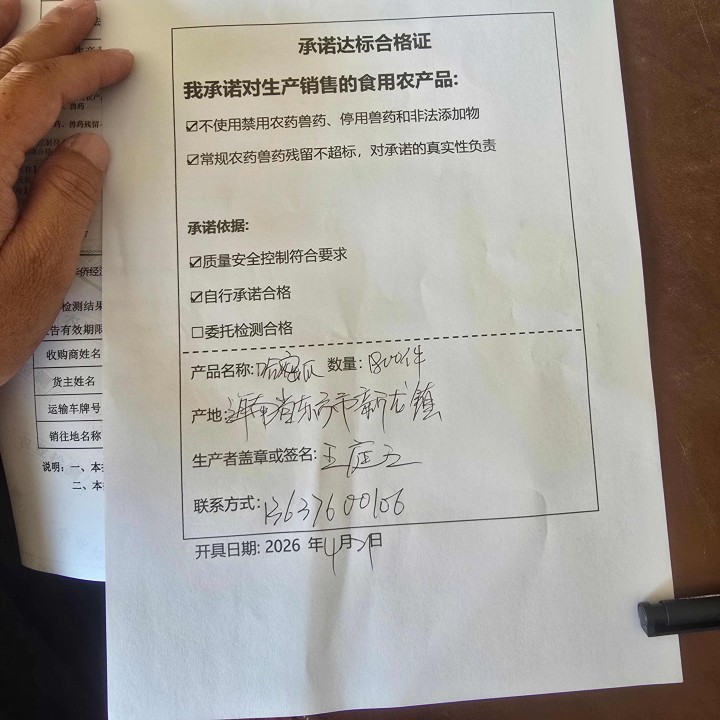 承诺达标合格证
我承诺对生产销售的食用农产品:
☑不使用禁用农药兽药、停用兽药和非法添加物
☑常规农药兽药残留不超标，对承诺的真实性负责
承诺依据:
☑质量安全控制符合要求
☑自行承诺合格
☐委托检测合格
产品名称:哈密瓜 数量:1800件
产地:海南省东方市新龙镇
生产者盖章或签名:王庭五
联系方式:13637600106
开具日期: 2026 年4月21日
检测结果
告有效期限
收购商姓名
货主姓名
运输车牌号
销往地名称
说明: 一、本
二、本